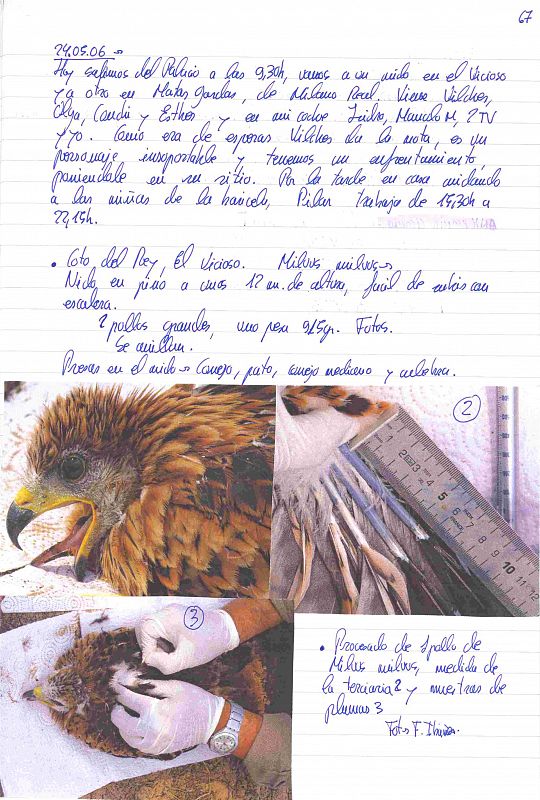 67
24.05.06 →
Hoy salimos del Palacio a las 9,30h, vamos a un nido en el Vicioso
y a otro en Matas gordas, de Milano Real. Viene Vilches,
Olga, Conchi y Esther y en mi coche Isidro, Manolo M, 2TV
y yo. Como era de esperar Vilches da la nota, es un
personaje insoportable y tenemos un enfrentamiento,
poniendole en su sitio. Por la tarde en casa cuidando
a las niñas de la varicela, Pilar trabaja de 15,30h a
22,15h.
• Coto del Rey, El Vicioso. Milvus milvus →
Nido en pino a unos 12 m. de altura, facil de subir con
escalera.
2 pollos grandes, uno pesa 915gr. Fotos.
Se anillan.
Presas en el nido → Conejo, pato, conejo mediano y culebra.
2
1 2 3 4 5 6 7 8 9 10 11 12
3
• Procesado de 1 pollo de
Milvus milvus, medida de
la terciaria 2 y muestras de
plumas 3
Fotos F.